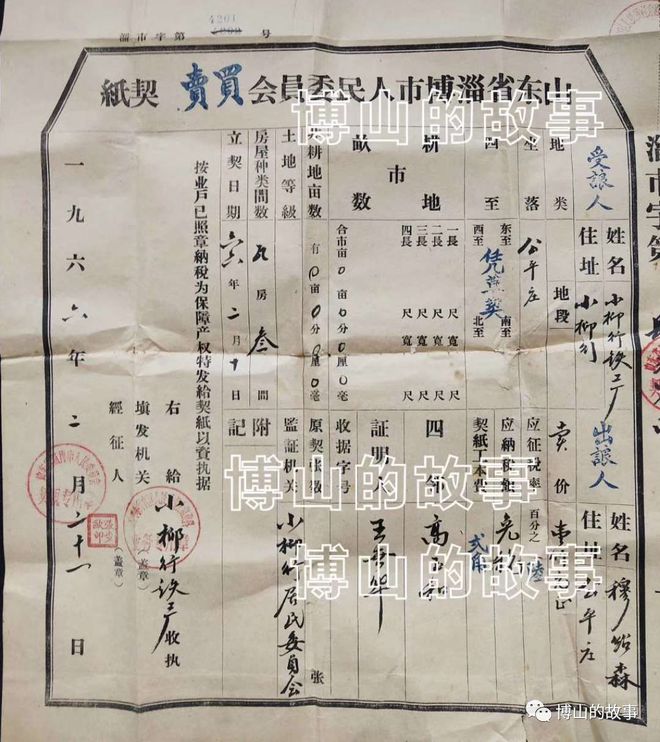 淄市字第 4261 号
山东省淄博市人民委員会買賣契紙
淄市字第
受讓人 姓名 小柳行铁工厂
住址 小柳行
出讓人 姓名 穆绍森
住址 公平庄
地类 地段 卖价
坐落 公平庄 应征税率百分之陸
四至 东至 西至 南至 北至
应納税額 免税
契紙工本費 弍角
耕地市畝数
一長 尺寬 尺
二長 尺寬 尺
三長 尺寬 尺
四長 尺寬 尺
四邻
合市亩0亩0分0厘0毫
証明人
耕地亩数 有0亩0分0厘0毫
收据字号
原契张数 张
土地等級
監証机关 小柳行居民委員会
房屋种类間数 瓦房叁間
附記
立契日期 六六年二月十日
按业戶已照章納税为保障产权特发給契紙以資执据
右給 小柳行铁工厂 收执
填发机关 （盖章）
經征人 （盖章）
一九六六年二月二十一日
博山的故事
博山的故事
博山的故事
博山的故事
博山的故事